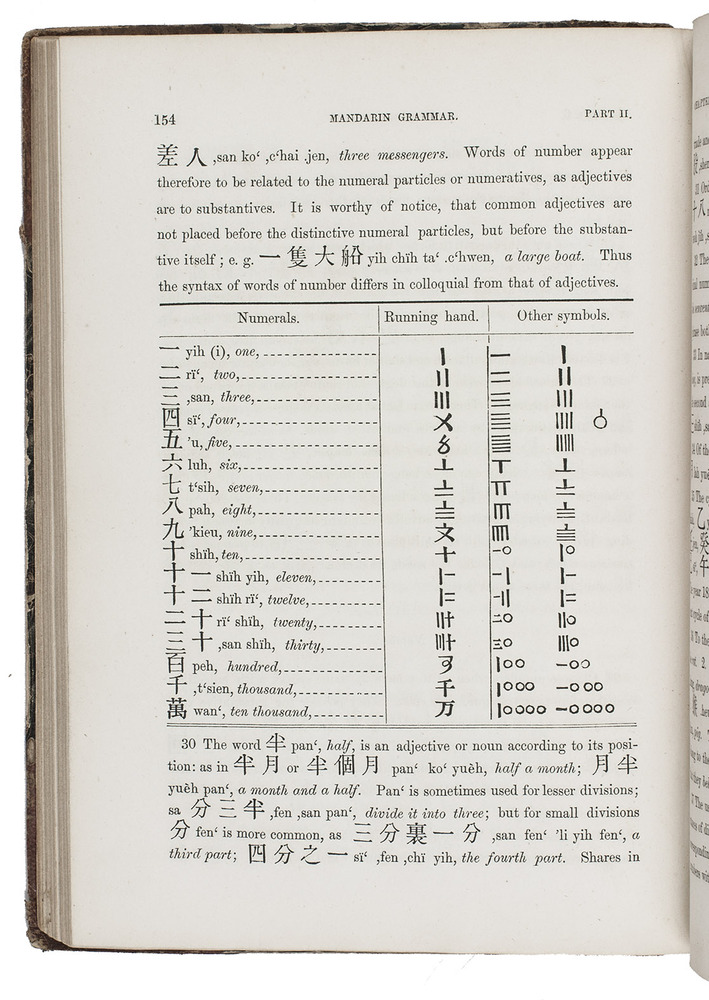 154 MANDARIN GRAMMAR. PART II.
差 人 ,san ko‘ ,c‘hai .jen, three messengers. Words of number appear
therefore to be related to the numeral particles or numeratives, as adjectives
are to substantives. It is worthy of notice, that common adjectives are
not placed before the distinctive numeral particles, but before the substan-
tive itself ; e. g. 一 隻 大 船 yih chïh ta‘ .c‘hwen, a large boat. Thus
the syntax of words of number differs in colloquial from that of adjectives.
Numerals. Running hand. Other symbols.
一 yih (i), one, 〡 一 〡
二 rï‘, two, 〢 二 〢
三 ,san, three, 〣 三 〣
四 sï‘, four, 〤
五 ’u, five,
六 luh, six, 〦 〦
七 t‘sih, seven, 〧 〧
八 pah, eight, 〨 〨
九 ’kieu, nine, 文
十 shïh, ten, 十 一○ 〡○
十 一 shïh yih, eleven, 〡一 一〡 〡一
十 二 shïh rï‘, twelve, 〡二 一〢 〡二
二 十 rï‘ shïh, twenty, 〢十 二○ 〢○
三 十 ,san shïh, thirty, 〣十 三○ 〣○
百 peh, hundred, 〡○○ 一○○
千 ,t‘sien, thousand, 千 〡○○○ 一○○○
萬 wan‘, ten thousand, 万 〡○○○○ 一○○○○
30 The word 半 pan‘, half, is an adjective or noun according to its posi-
tion: as in 半 月 or 半 個 月 pan‘ ko‘ yuèh, half a month; 月 半
yuèh pan‘, a month and a half. Pan‘ is sometimes used for lesser divisions;
sa 分 三 半 ,fen ,san pan‘, divide it into three; but for small divisions
分 fen‘ is more common, as 三 分 裏 一 分 ,san fen‘ ’li yih fen‘, a
third part; 四 分 之 一 sï‘ ,fen ,chï yih, the fourth part. Shares in